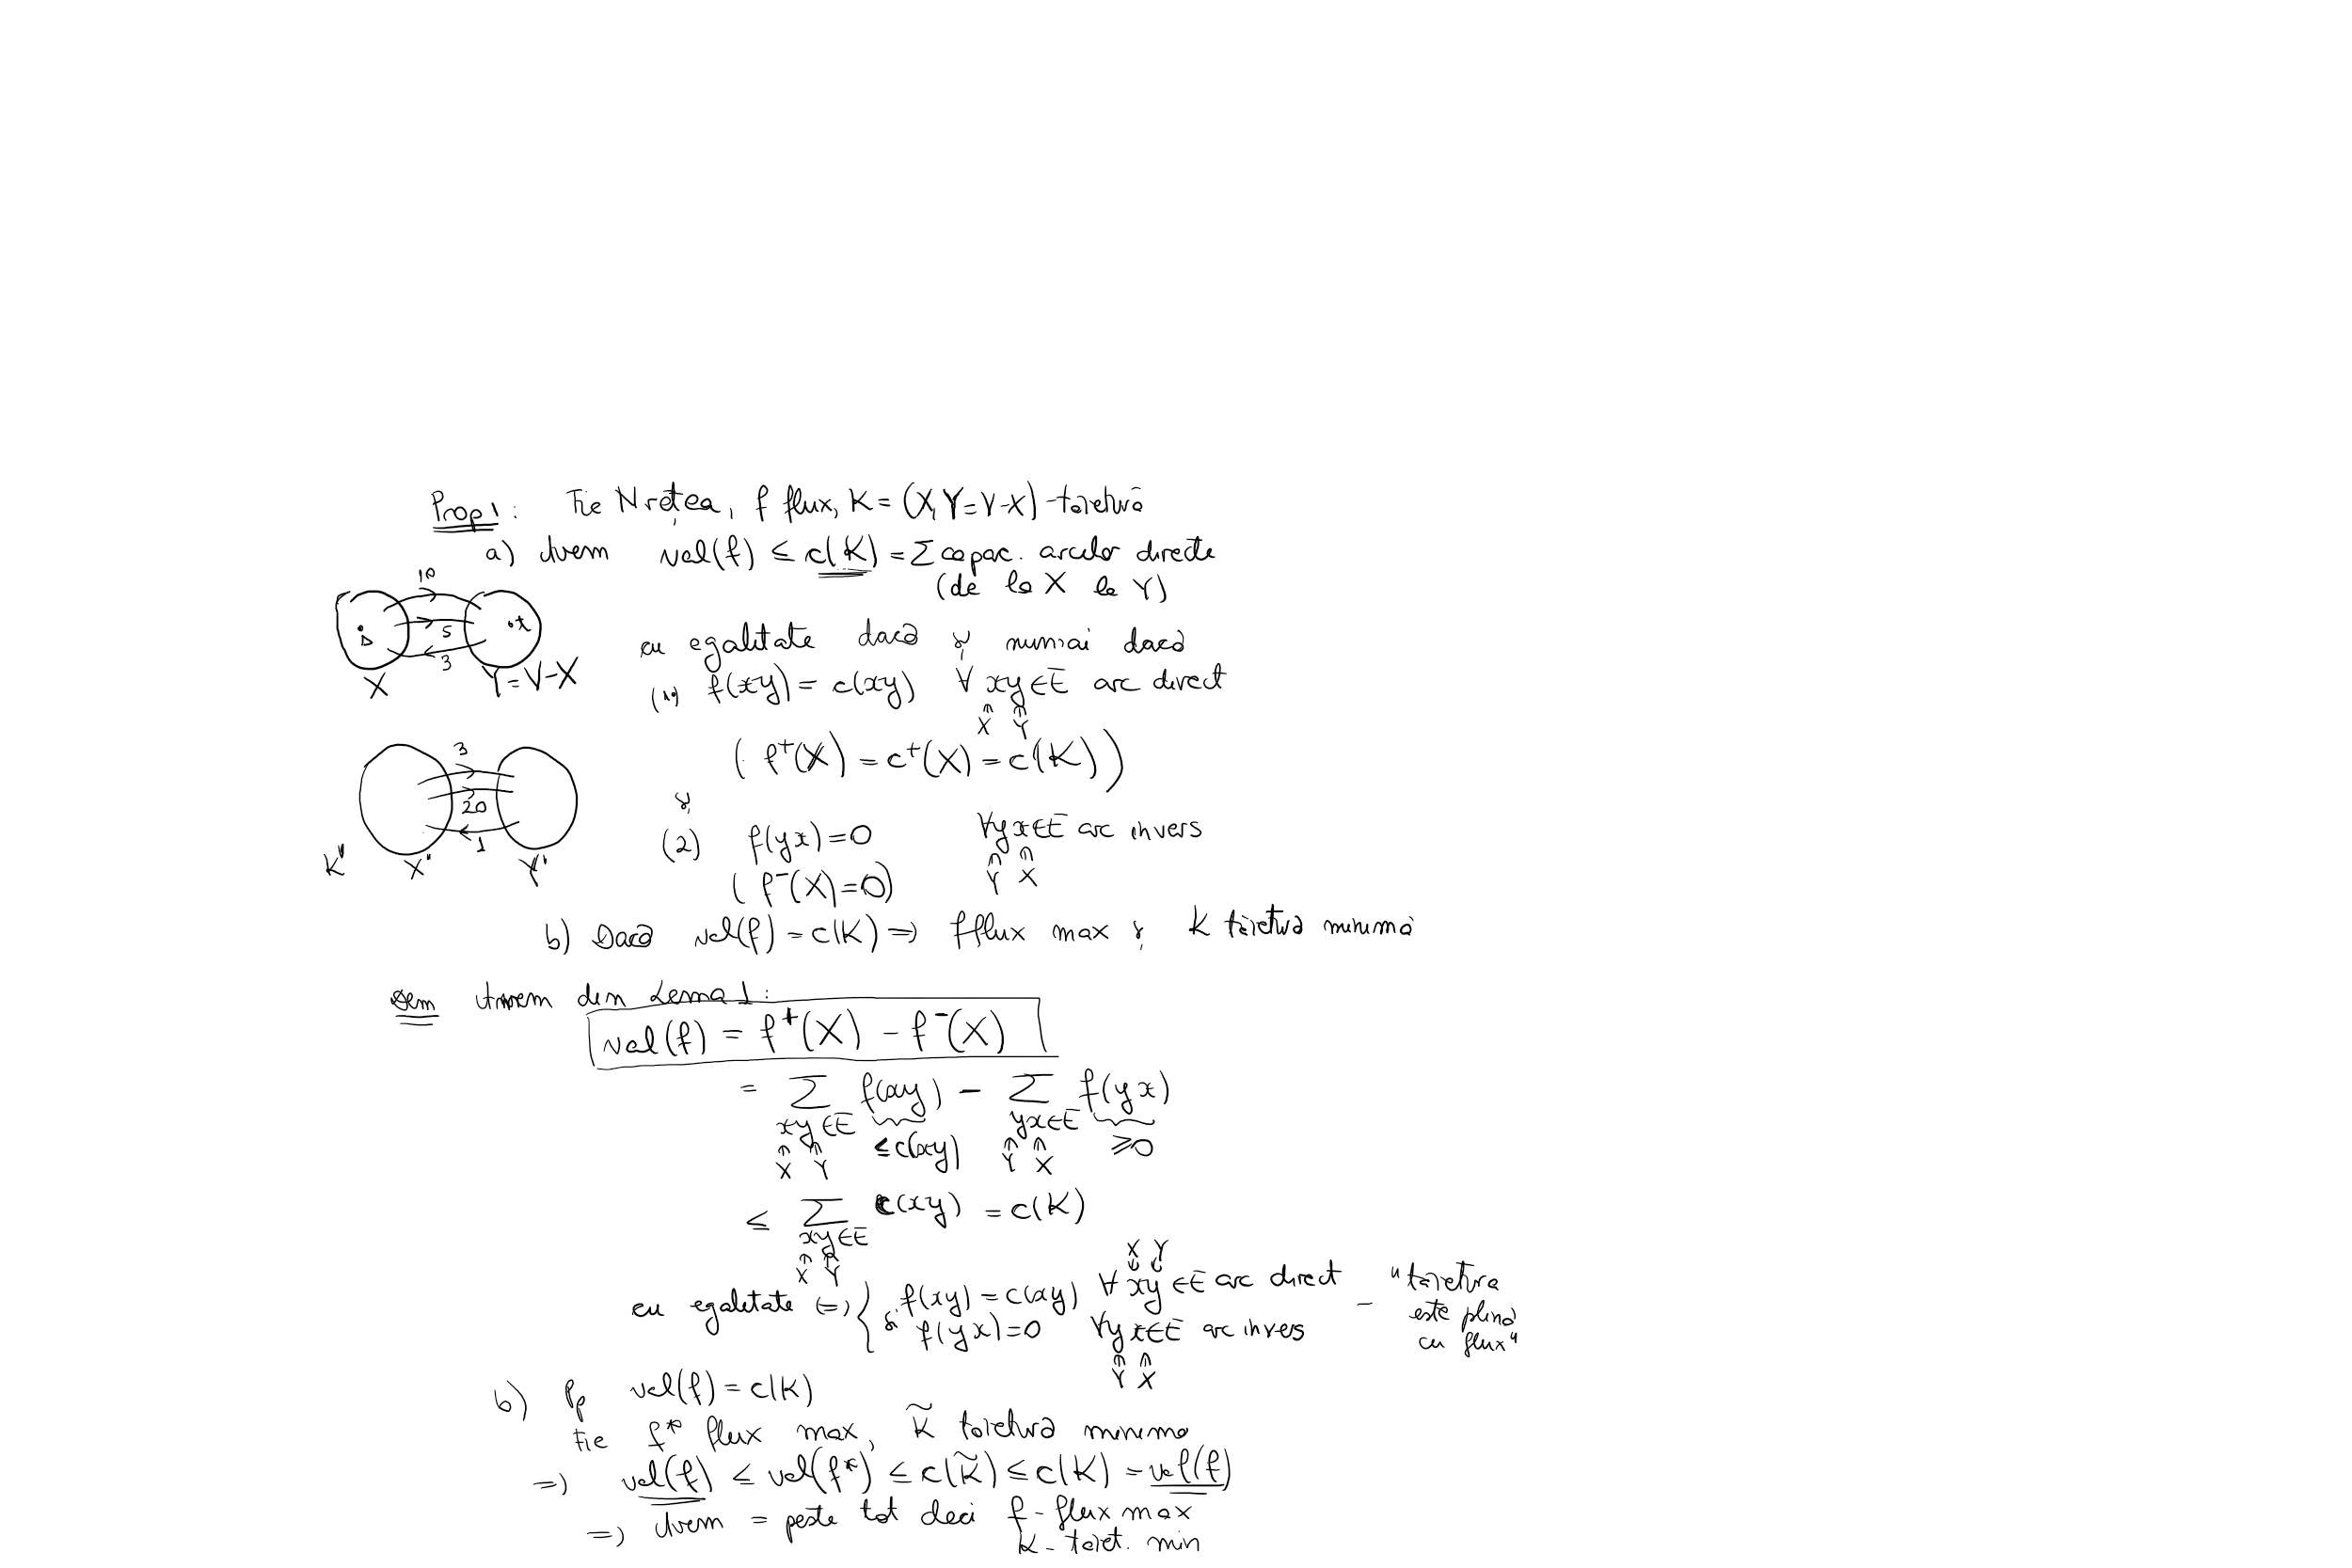 Prop 1: Fie N rețea, f flux, K = (X, Y=V-X) - tăietură
a) Avem val(f) ≤ c(K) = Σ capac. arcelor directe
(de la X la Y)
10
5
3
s
t
X
Y=V-X
cu egalitate dacă și numai dacă
(1) f(xy) = c(xy) ∀ xy∈E arc direct
X Y
( f⁺(X) = c⁺(X) = c(K) )
3
20
1
K'
X'
Y'
și
(2) f(yx)=0 ∀yx∈E arc invers
Y X
( f⁻(X)=0 )
b) Dacă val(f) = c(K) ⇒ f flux max și K tăietură minimă
Dem Avem din Lema 1:
val(f) = f⁺(X) - f⁻(X)
= Σ f(xy) - Σ f(yx)
xy∈E yx∈E
≤c(xy) ≥0
X Y Y X
≤ Σ c(xy) = c(K)
xy∈E
X Y
X Y
cu egalitate ⇔ { f(xy) = c(xy) ∀ xy ∈E arc direct - "tăietura
și f(yx)=0 ∀yx∈E arc invers este plină
Y X cu flux"
b) Pp val(f) = c(K)
Fie f* flux max, K̃ tăietură minimă
⇒ val(f) ≤ val(f*) ≤ c(K̃) ≤ c(K) = val(f)
⇒ Avem = peste tot deci f - flux max
K - tăiet. min